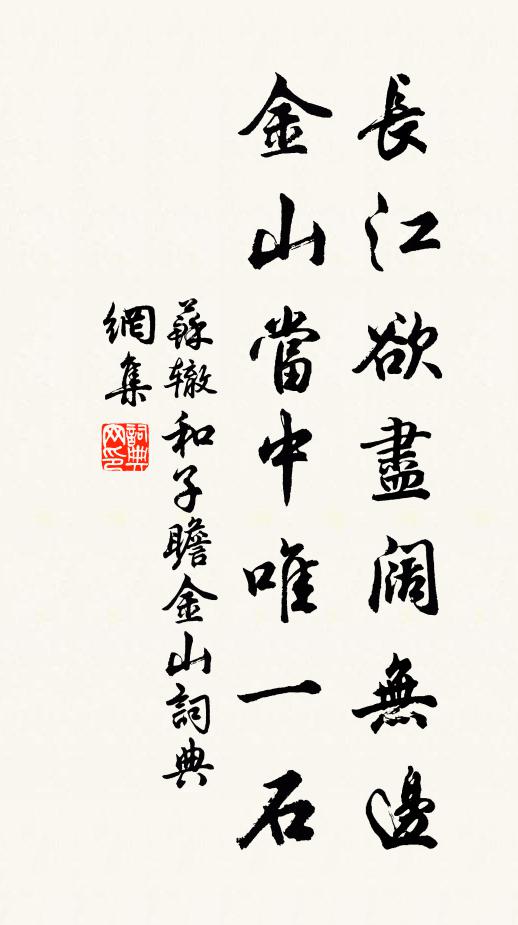 長江欲盡闊無邊
金山當中唯一石
蘇辙和子瞻金山詞典
網集
詞典
网印